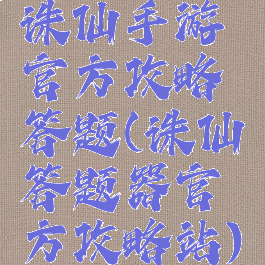 诛仙手游
官方攻略
答题(诛仙
答题器官
方攻略站)